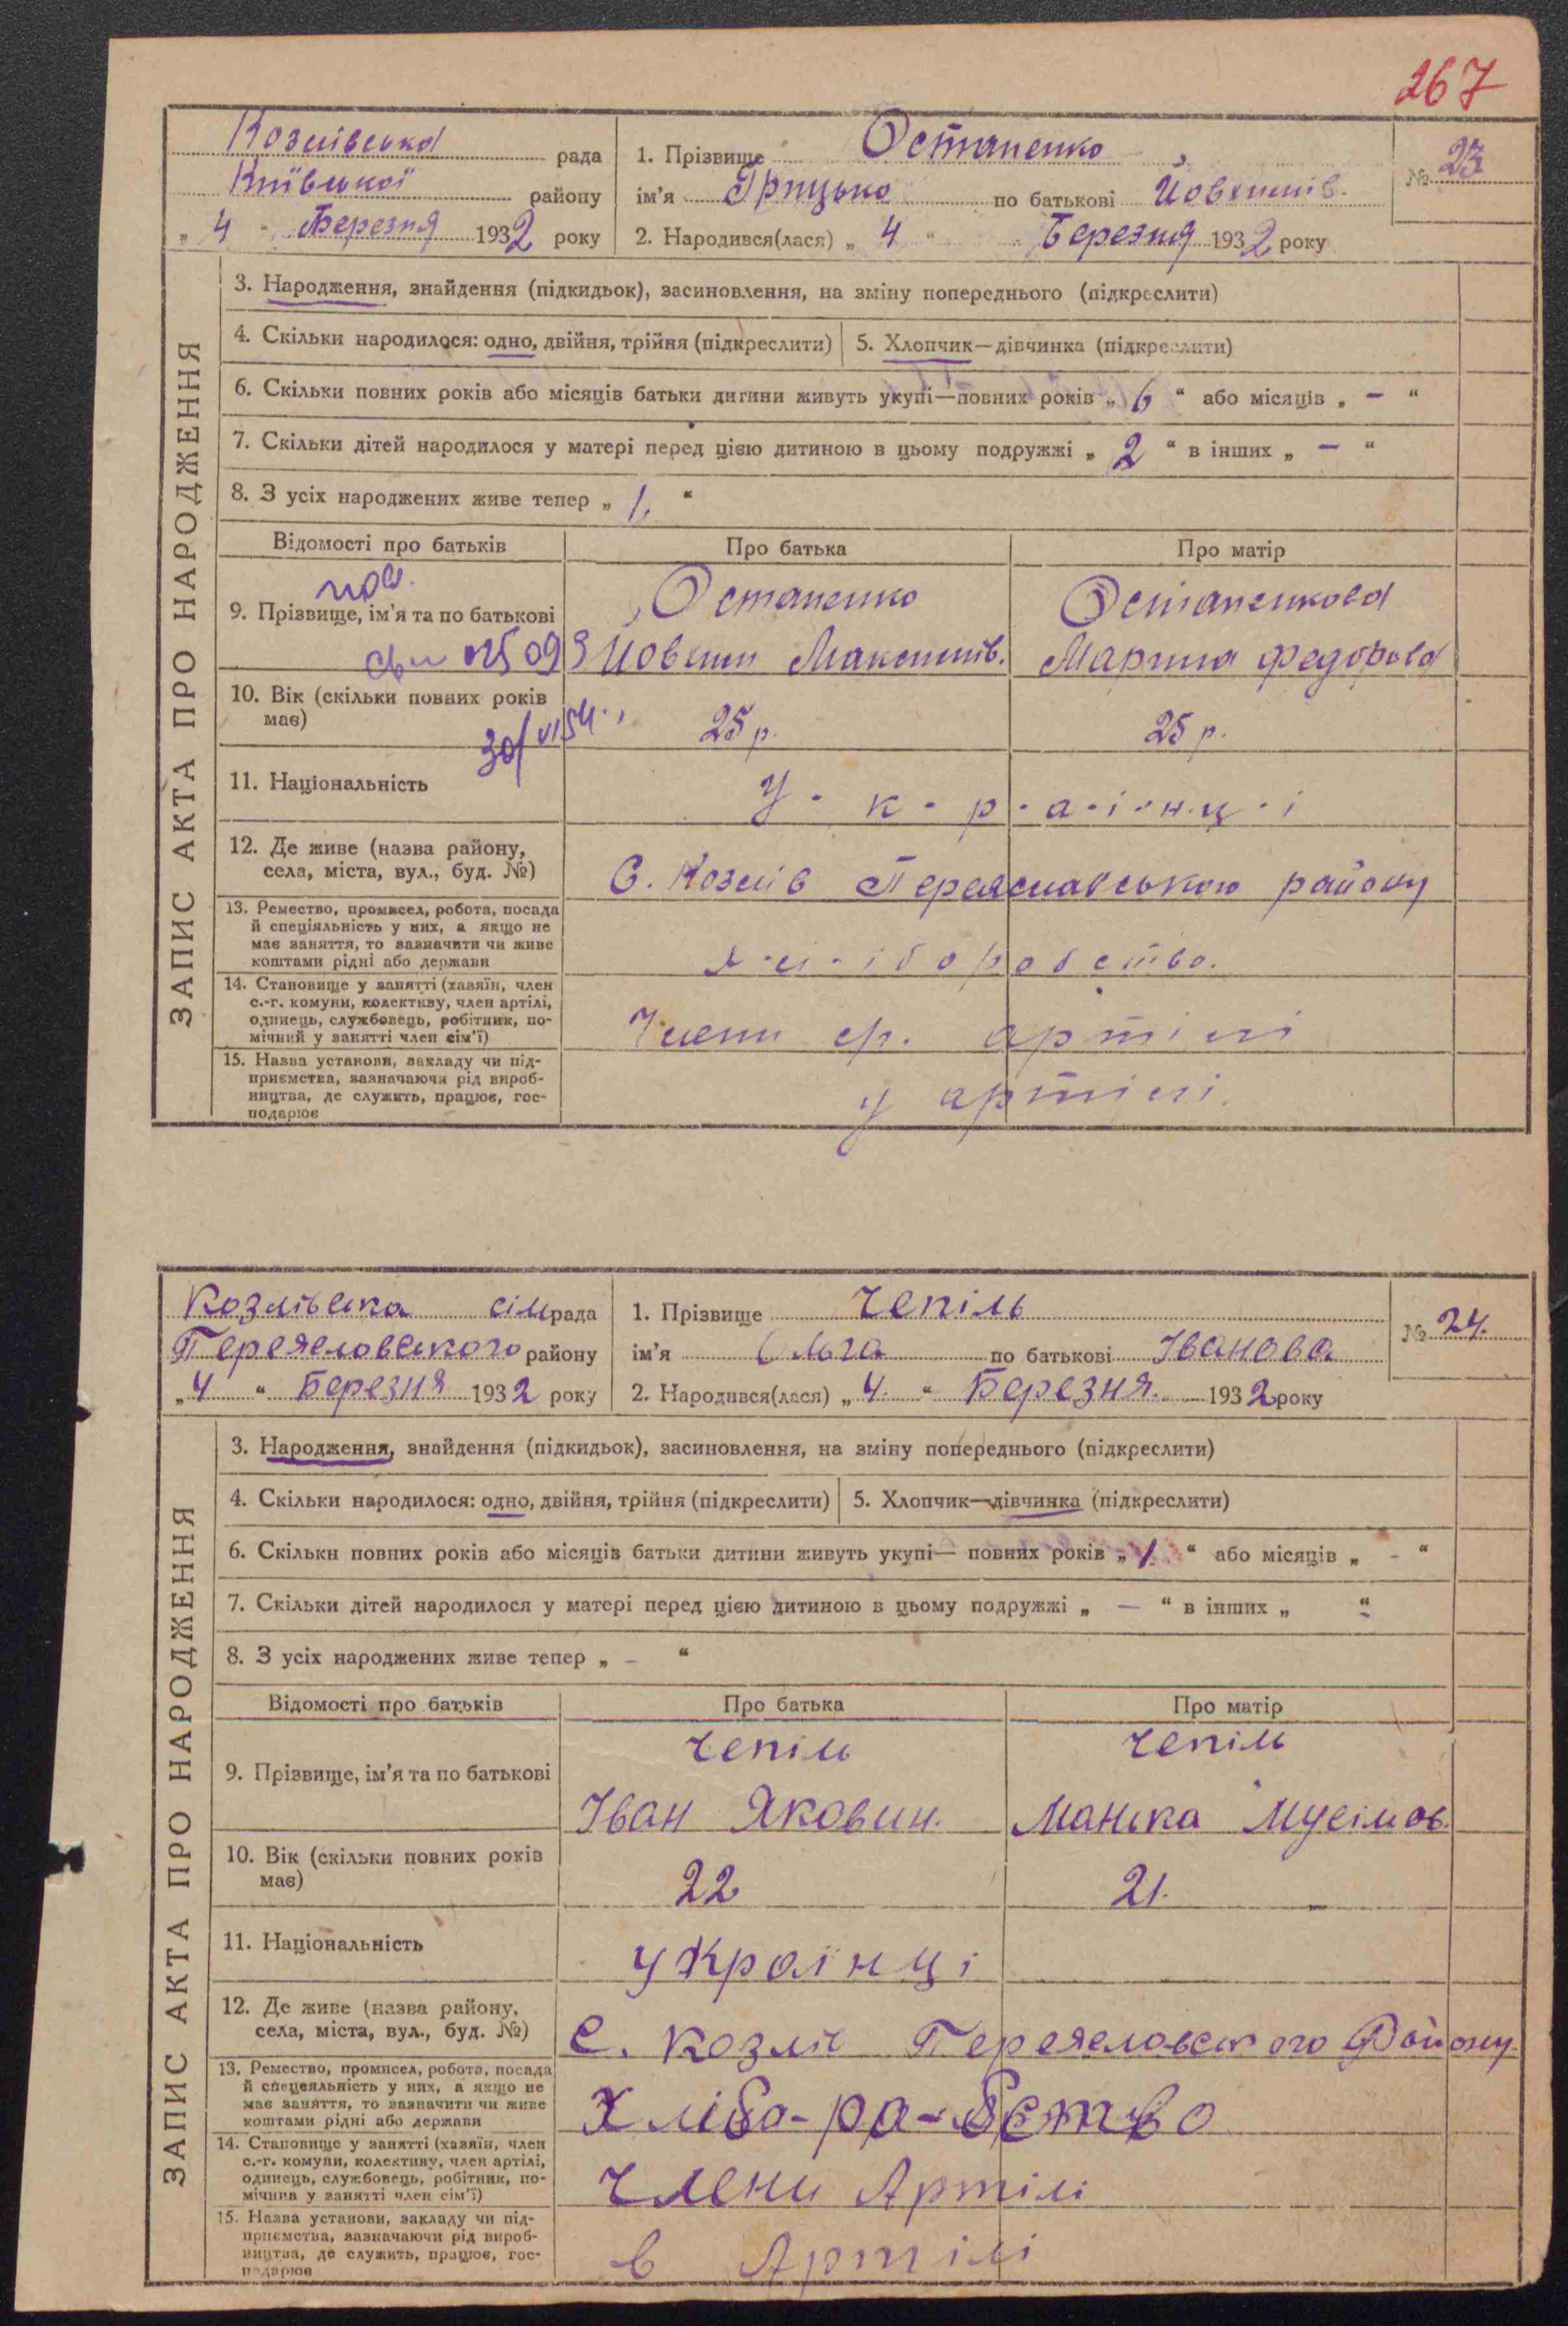 267
Козлівська рада
Київської району
„ 4 “ Березня 1932 року
1. Прізвище Остапенко
ім'я Грицько по батькові Йовхимів.
2. Народився(лася) „ 4 “ Березня 1932 року
№ 23
ЗАПИС АКТА ПРО НАРОДЖЕННЯ
3. Народження, знайдення (підкидьок), засиновлення, на зміну попереднього (підкреслити)
4. Скільки народилося: одно, двійня, трійня (підкреслити) 5. Хлопчик—дівчинка (підкреслити)
6. Скільки повних років або місяців батьки дитини живуть укупі—повних років „ 6 “ або місяців „ – “
7. Скільки дітей народилося у матері перед цією дитиною в цьому подружжі „ 2 “ в інших „ – “
8. З усіх народжених живе тепер „ 1. “
Відомості про батьків Про батька Про матір
9. Прізвище, ім'я та по батькові
Остапенко Остапенкова
Йовхим Максимів. Марина Федорова
10. Вік (скільки повних років має)
25 р. 25 р.
30/VI 54
11. Національність
У-к-р-а-ї-н-ц-і
12. Де живе (назва району, села, міста, вул., буд. №)
С. Козлів Переяславського району
13. Ремество, промисел, робота, посада
й спеціяльність у них, а якщо не
має заняття, то зазначити чи живе
коштами рідні або держави
х-л-іборобство.
14. Становище у занятті (хазяїн, член
с.-г. комуни, колективу, член артілі,
одинець, службовець, робітник, по-
мічний у занятті член сім'ї)
Члени ср. артілі
15. Назва установи, закладу чи під-
приємства, зазначаючи рід вироб-
ництва, де служить, працює, гос-
подарює
у артілі.
Козлівська сілрада
Переяловського району
„ 4 “ Березня 1932 року
1. Прізвище Чепіль
ім'я Ольга по батькові Іванова
2. Народився(лася) „ 4. “ Березня. 1932 року
№ 24.
ЗАПИС АКТА ПРО НАРОДЖЕННЯ
3. Народження, знайдення (підкидьок), засиновлення, на зміну попереднього (підкреслити)
4. Скільки народилося: одно, двійня, трійня (підкреслити) 5. Хлопчик—дівчинка (підкреслити)
6. Скільки повних років або місяців батьки дитини живуть укупі— повних років „ 1. “ або місяців „ - “
7. Скільки дітей народилося у матері перед цією дитиною в цьому подружжі „ — “ в інших „ “
8. З усіх народжених живе тепер „ – “
Відомості про батьків Про батька Про матір
9. Прізвище, ім'я та по батькові
Чепіль Чепіль
Іван Яковин. Манька Мусімов.
10. Вік (скільки повних років має)
22 21.
11. Національність
українці
12. Де живе (назва району, села, міста, вул., буд. №)
с. Козлів Переяеловського Району
13. Ремество, промисел, робота, посада
й спецеяльність у них, а якщо не
має заняття, то зазначити чи живе
коштами рідні або держави
Хліба-ра-бство
14. Становище у занятті (хазяїн, член
с.-г. комуни, колективу, член артілі,
одинець, службовець, робітник, по-
мічнив у занятті член сім'ї)
Члени Артілі
15. Назва установи, закладу чи під-
приємства, зазначаючи рід вироб-
ництва, де служить, працює, гос-
подарює
в Артілі